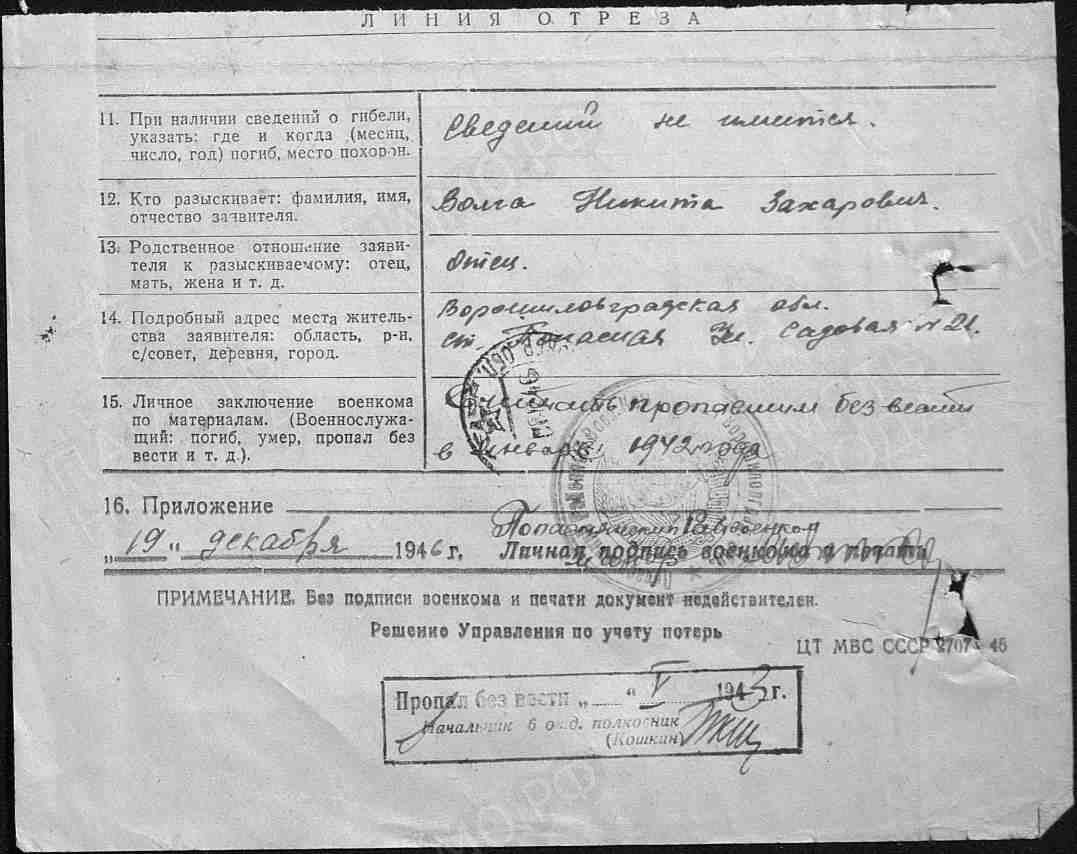 ЛИНИЯ ОТРЕЗА
11. При наличии сведений о гибели,
указать: где и когда (месяц,
число, год) погиб, место похорон.
Сведений не имеится.
12. Кто разыскивает: фамилия, имя,
отчество заявителя.
Волга Никита Захарович.
13. Родственное отношение заяви-
теля к разыскиваемому: отец,
мать, жена и т. д.
Отец.
14. Подробный адрес места житель-
ства заявителя: область, р-н,
с/совет, деревня, город.
Ворошиловградская обл.
ст. Попасная Ул. Садовая № 21.
15. Личное заключение военкома
по материалам. (Военнослужа-
щий: погиб, умер, пропал без
вести и т. д.).
Считать пропавшим без вести
в январе 1942 года
16. Приложение
Попаснянский Райвоенком
„19" декабря 1946 г. Личная подпись военкома и печать
майор
ПРИМЕЧАНИЕ. Без подписи военкома и печати документ недействителен.
Решение Управления по учету потерь
ЦТ МВС СССР 2707 46
Пропал без вести „ " V 1943 г.
Начальник 6 отд. полковник
(Кошкин)